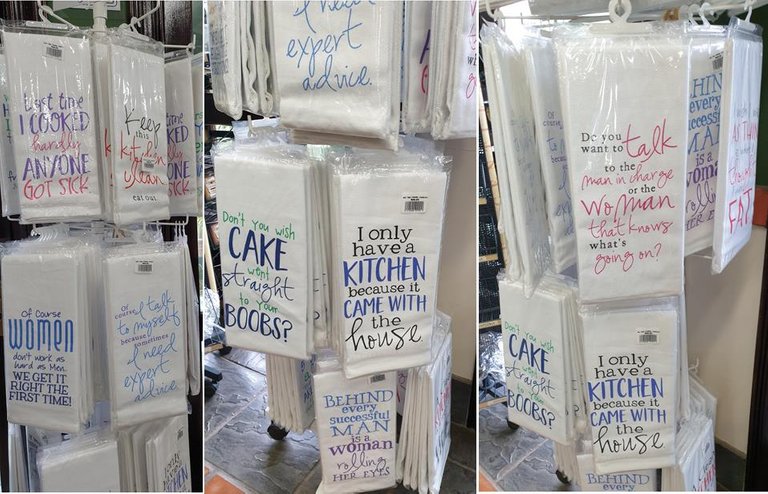 Last time
I COOKED
hardly
ANYONE
GOT SICK
Keep
this
kitchen
clean
eat out
OKED
Of course
WOMEN
don't work as
hard as Men.
WE GET IT
RIGHT THE
FIRST TIME!
Of
course, I talk
to myself
because sometimes
I need
expert
advice.
I need
expert
advice.
Don't you wish
CAKE
went
straight
to your
BOOBS?
I only
have a
KITCHEN
because it
CAME WITH
the
house
BEHIND
every
successful
MAN
is a
woman
rolling
HER EYES
Do you
want to talk
to the
man in charge
or the
woman
that knows
what's
going on?
BEHIND
every
successful
MAN
is a
woman
rolling
HER EYES
FAT
Don't you wish
CAKE
went
straight
to your
BOOBS?
I only
have a
KITCHEN
because it
CAME WITH
the
house
BEHIND
every